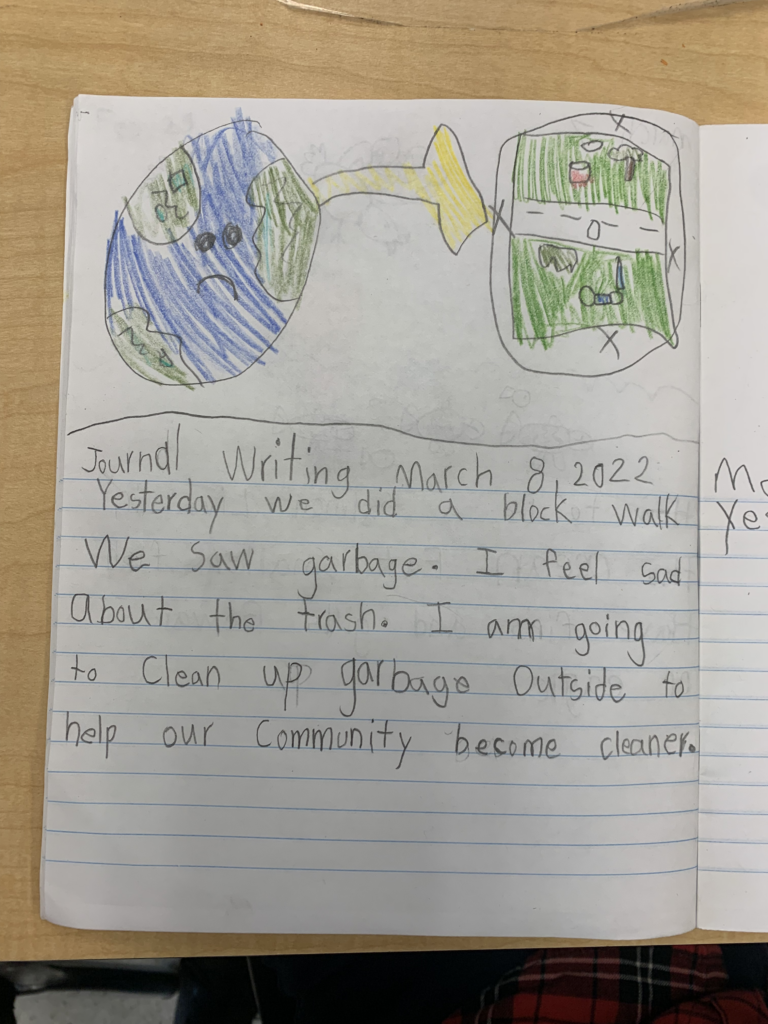 Journal Writing March 8, 2022
Yesterday we did a block walk
We saw garbage. I feel sad
about the trash. I am going
to Clean up garbage Outside to
help our Community become cleaner.
Ma
Yes